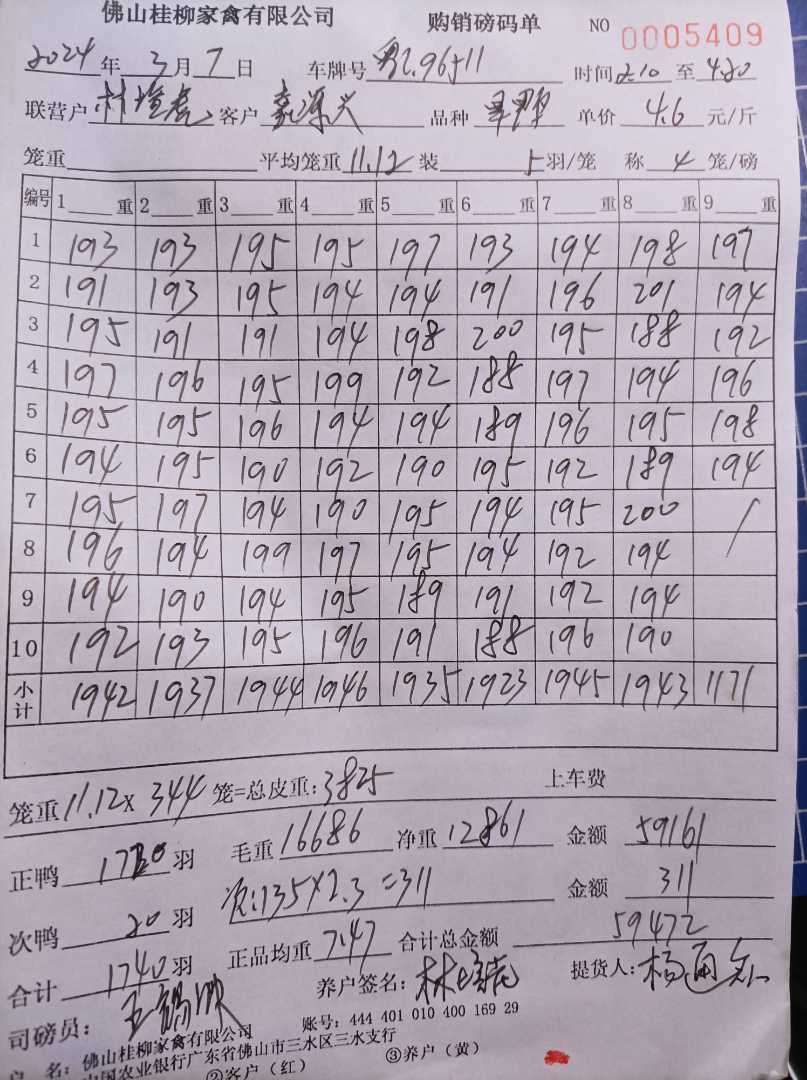 佛山桂柳家禽有限公司 购销磅码单 NO 0005409
2024年3月7日 车牌号 粤Z.96511 时间2:10至4:20
联营户 客户 豪源兴 品种 单价 4.6 元/斤
笼重 平均笼重 11.12 装 5 羽/笼 称 4 笼/磅
编号 1 重 2 重 3 重 4 重 5 重 6 重 7 重 8 重 9 重
1 193 193 195 195 197 193 194 198 197
2 191 193 195 194 194 191 196 201 194
3 195 191 191 194 198 200 195 188 192
4 197 196 195 199 192 188 197 194 196
5 195 195 196 194 194 189 196 195 198
6 194 195 190 192 190 195 192 189 194
7 195 197 194 190 195 194 195 200 /
8 196 194 199 197 195 194 192 194
9 194 190 194 195 189 191 192 194
10 192 193 195 196 191 188 196 190
小计 1942 1937 1944 1946 1935 1923 1945 1943 1171
笼重 11.12 x 344 笼=总皮重: 3825 上车费
正鸭 1720 羽 毛重 16686 净重 12861 金额 59161
次鸭 20 羽 次:135×2.3=311 金额 311
合计 1740 羽 正品均重 7.47 合计总金额 59472
司磅员: 养户签名: 提货人:
户 名: 佛山桂柳家禽有限公司 账号: 444 401 010 400 169 29
中国农业银行广东省佛山市三水区三水支行
②客户（红） ③养户（黄）